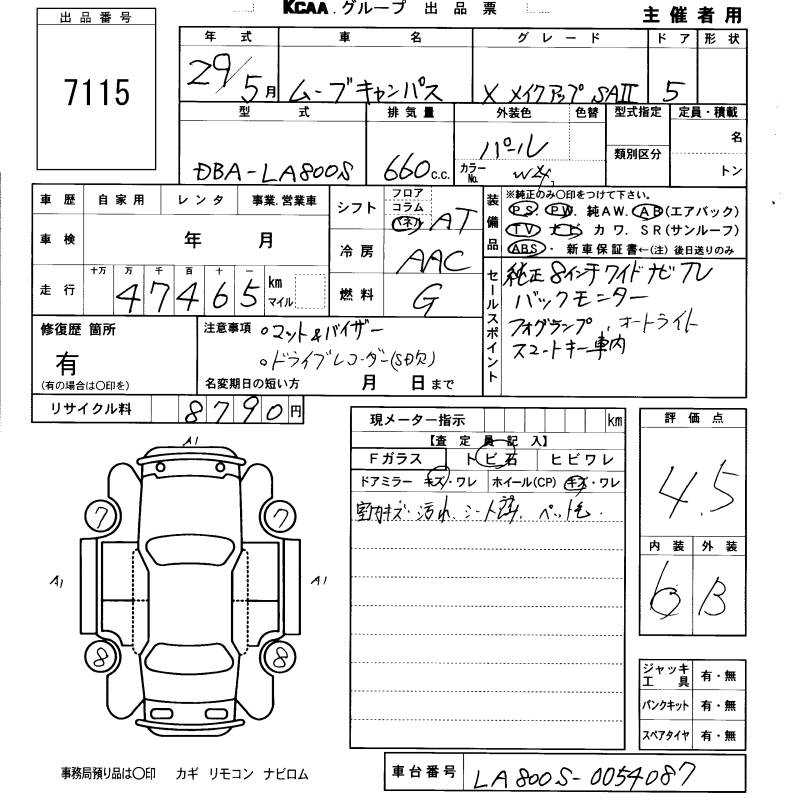 KCAA グループ 出品票
主催者用
出品番号
7115
年式 車名 グレード ドア 形状
29/5月 ムーブキャンバス X メイクアップ SAII 5
型式 排気量 外装色 色替 型式指定 定員・積載
DBA-LA800S 660c.c. パール カラーNo. W24 類別区分 名 トン
車歴 自家用 レンタ 事業.営業車
車検 年 月
走行 十万 万 千 百 十 一
47465 km マイル
シフト フロア コラム パネル AT
冷房 AAC
燃料 G
装備品 ※純正のみ〇印をつけて下さい。
PS. PW. 純AW. AB(エアバック)
TV ナビ カワ. SR(サンルーフ)
ABS・ 新車保証書←(注) 後日送りのみ
セールスポイント
純正8インチワイドナビTV
バックモニター
フォグランプ、オートライト
スマートキー車内
修復歴 箇所
有
(有の場合は〇印を)
注意事項 ○マット&バイザー
○ドライブレコーダー(SD欠)
名変期日の短い方 月 日まで
リサイクル料 8790円
現メーター指示 km
【査定員記入】
Fガラス トビ石 ヒビワレ
ドアミラー キズ・ワレ ホイール(CP) キズ・ワレ
室内キズ 汚れ、シート ペット毛.
評価点
4.5
内装 外装
B
A1
7 7
A1 A1
8 8
ジャッキ工具 有・無
パンクキット 有・無
スペアタイヤ 有・無
事務局預り品は〇印 カギ リモコン ナビロム
車台番号 LA800S-0054087